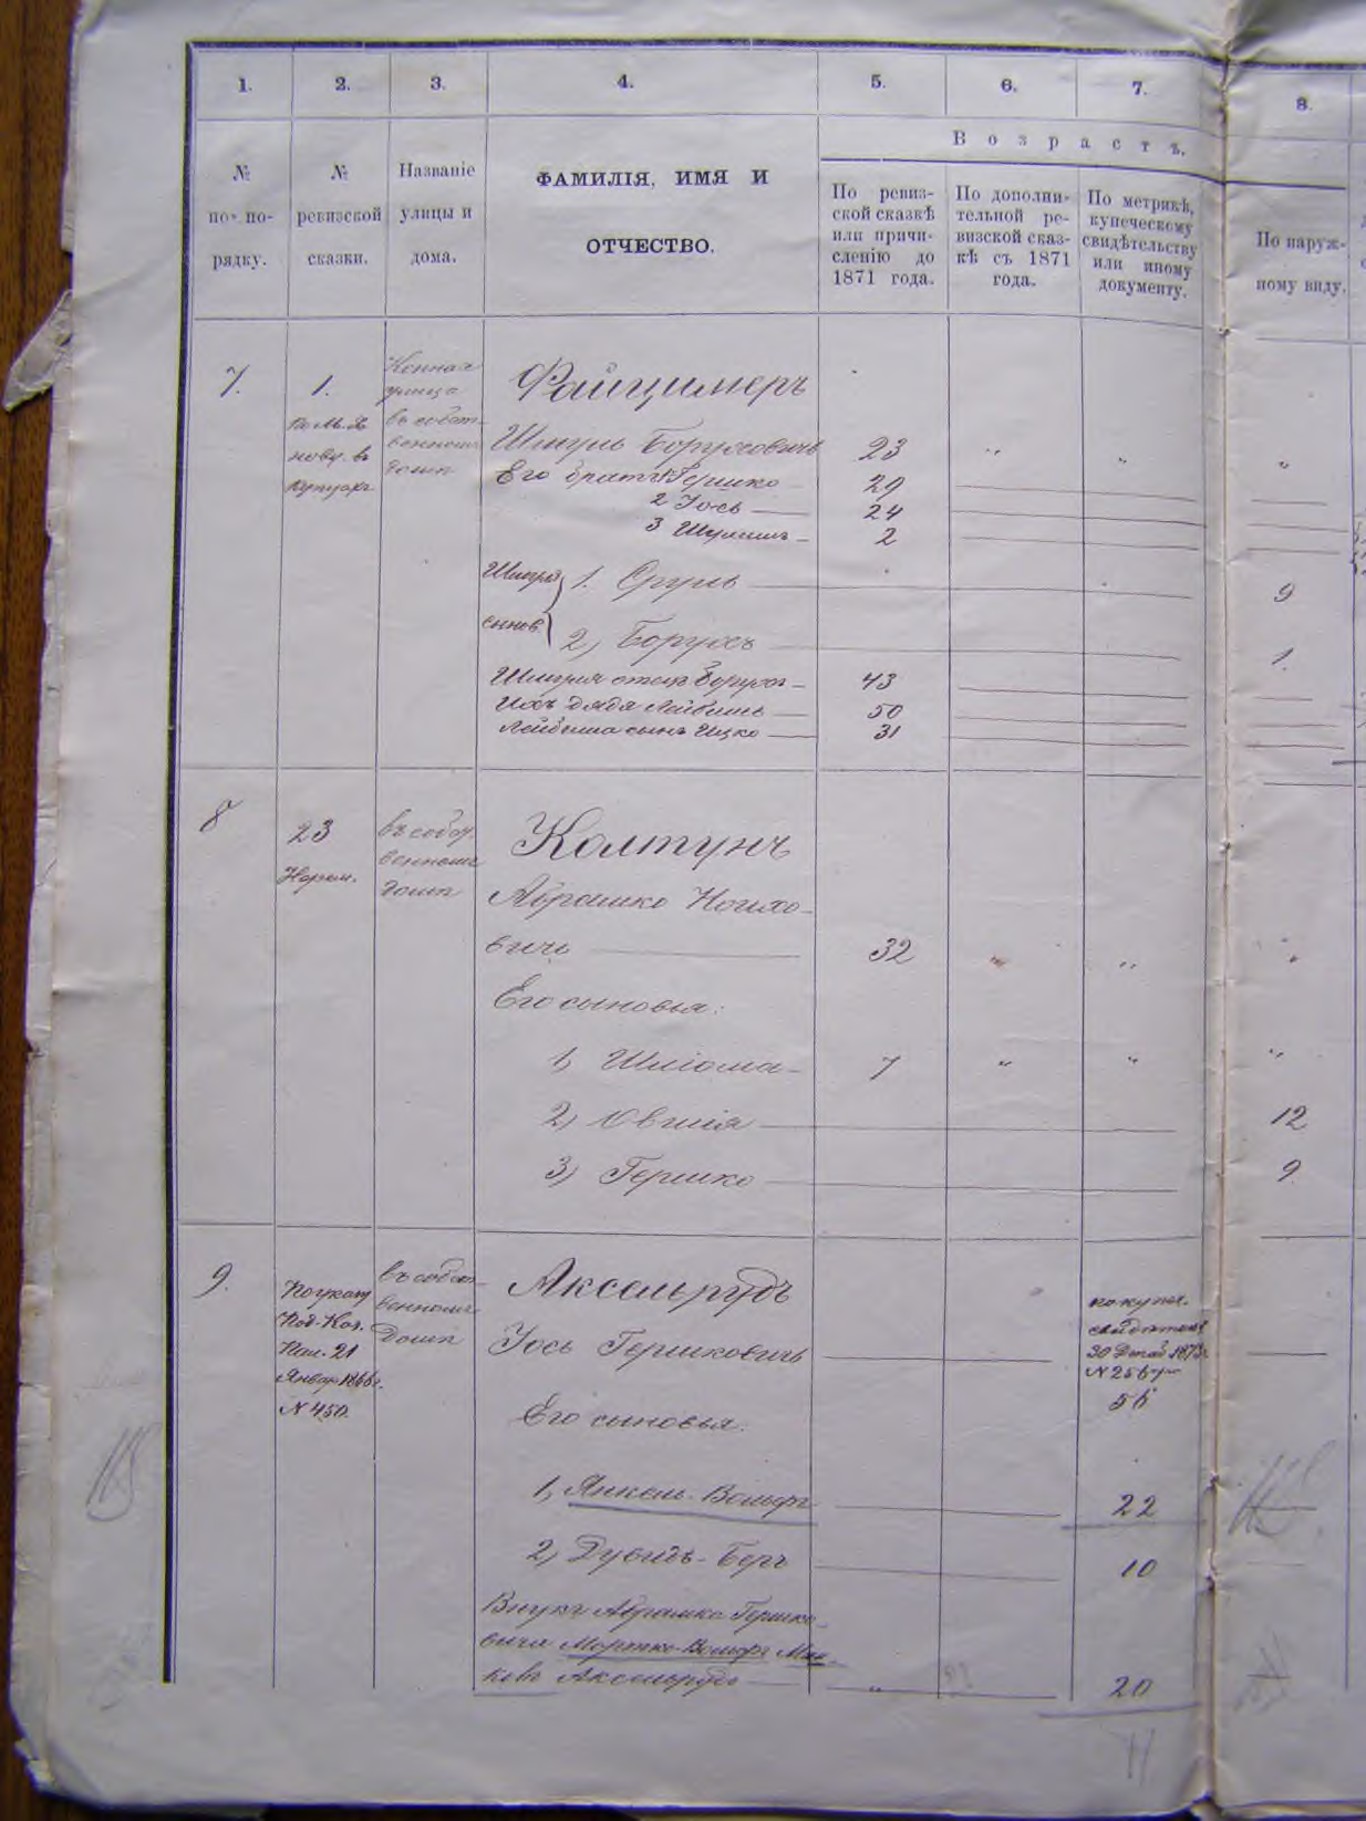 1. 2. 3. 4. 5. 6. 7. 8.
Возрастъ.
№
по по-
рядку.
№
ревизской
сказки.
Названіе
улицы и
дома.
ФАМИЛІЯ, ИМЯ И
ОТЧЕСТВО.
По ревиз-
ской сказкѣ
или причи-
сленію до
1871 года.
По дополни-
тельной ре-
визской сказ-
кѣ съ 1871
года.
По метрикѣ,
купеческому
свидѣтельству
или иному
документу.
По наруж-
ному виду.
7. 1.
Конная
улица
въ собст-
венномъ
домѣ
Файнцимеръ
Шмуль Боруховичъ 23 " " "
Его братья 1 Гершко 29
2 Іось 24
3 Шулимъ 2
Шмуля
сынов.
1. Сруль 9
2) Борухъ 1.
Шмуля отецъ Борухъ 43
Ихъ дядя Лейбишъ 50
Лейбиша сынъ Ицко 31
8 23
въ собст-
венномъ
домѣ
Колтунъ
Абрашко Нотхо-
вичъ 32 " " "
Его сыновья:
1) Шліома 7 " " "
2) Овшія 12
3) Гершко 9
9.
По указу
Под. Каз.
Пал. 21
Январ 1866 г.
№ 450.
въ собст-
венномъ
домѣ
Аксельрудъ
Іось Гершковичъ
по купеч.
свидѣтел.
30 Декаб 1873 г.
№ 256
56
Его сыновья.
1) Янкель-Вольфъ 22
2) Дувидъ-Беръ 10
Внукъ Абрашка Гершко-
вича Мортко-Вольфъ Мин-
ковъ Аксельрудъ " 20